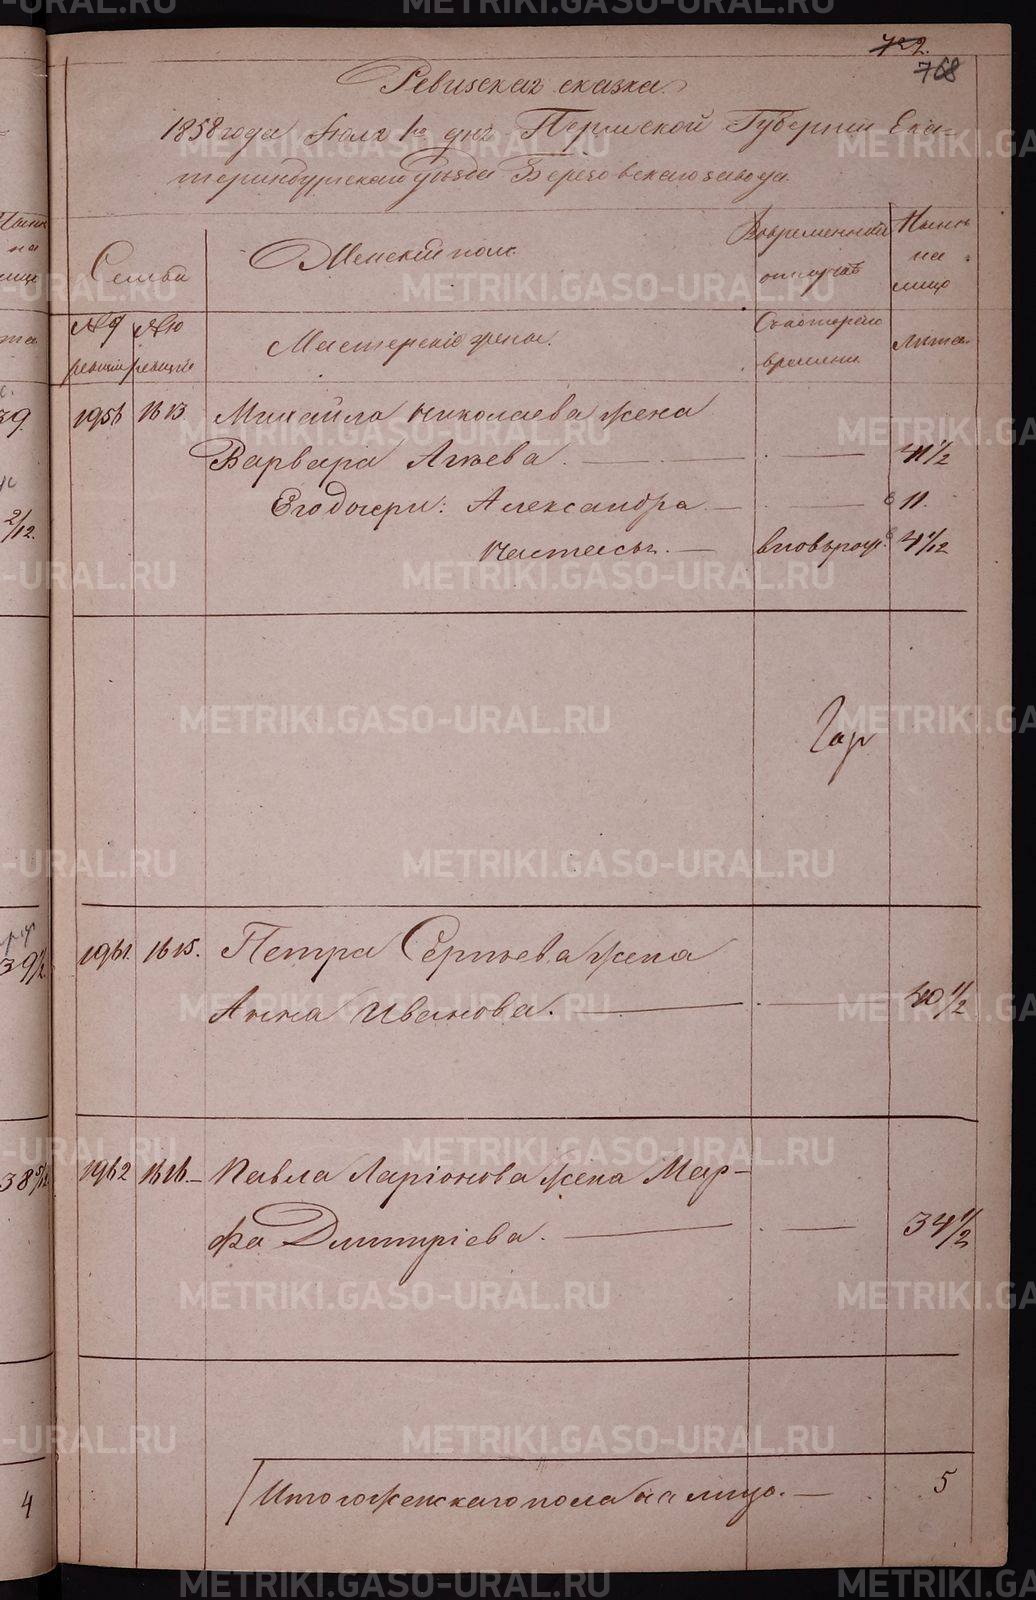 722.
768
Ревизская сказка.
1858 года Июля 1го дня Пермской Губернии Ека-
теринбургскаго Уезда Березовскаго завода.
Семьи
Женский пол.
Вовременной
отлучке
Ныне
на
лицо
№ 9
ревизии
№ 10
ревизии
Мастерские жены.
Скотораго
времени
Лета.
1956 1613 Михайла Николаева жена
Варвара Агиева. — . — 41 1/2
Его дочери: Александра — . — 11.
Настасья. — вновь рож. 4 1/12
1961. 1615. Петра Сергеева жена
Анна Иванова. — . — 40 1/2
1962 1616.— Павла Ларіонова жена Мар-
фа Дмитріева. — . — 34 1/2
Итого женскаго пола на лицо. — 5
39.
2/12.
39 1/2
38 5/12
4
METRIKI.GASO-URAL.RU